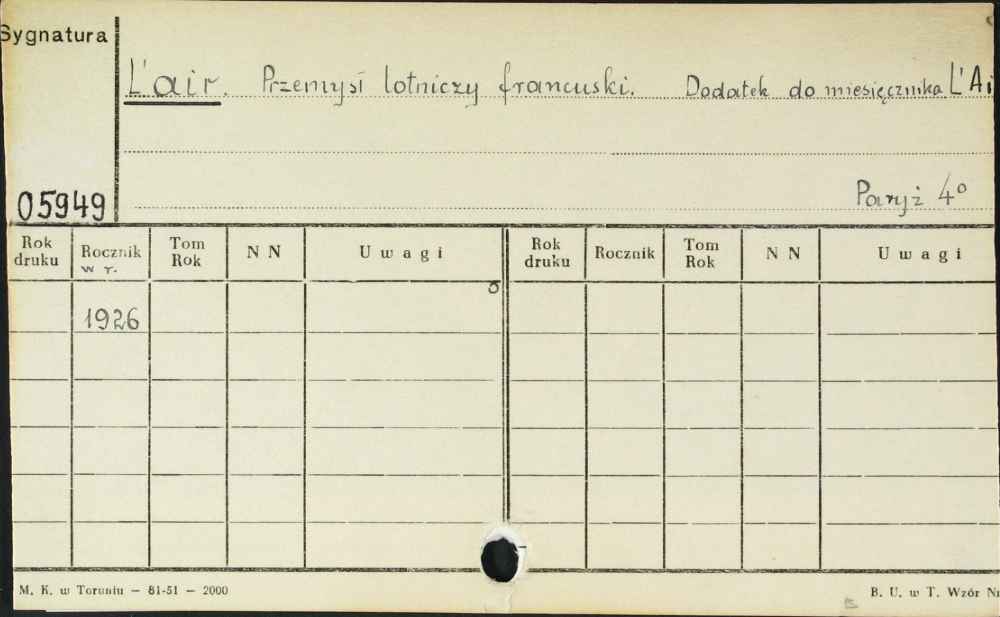 Sygnatura
L'air. Przemysł lotniczy francuski. Dodatek do miesięcznika L'Ai
05949
Paryż 4°
Rok druku Rocznik w r. Tom Rok N N Uwagi Rok druku Rocznik Tom Rok N N Uwagi
1926
M. K. w Toruniu — 81-51 — 2000 B. U. w T. Wzór Nr